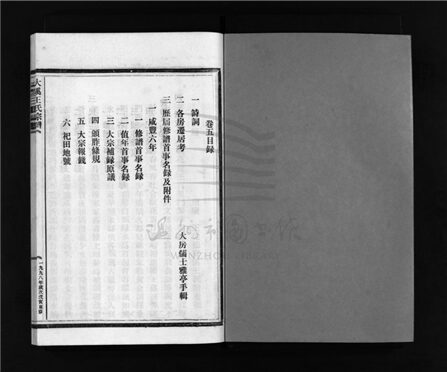 卷五目録
一 詩詞
二 各房遷居考
三 歷屆修譜首事名録及附件
一 咸豐六年
大房儒士雅亭手輯
一 修譜首事名録
二 值年首事名録
三 大宗補録原議
四 頒胙條規
五 大宗報籤
六 祀田地號
大溪王氏宗譜
一九九八年歲次戊寅重修
溫州市圖書館
WENZHOU LIBRARY